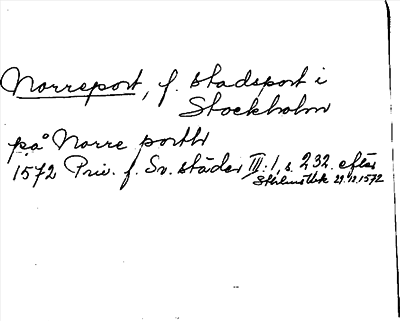 Norreport, f. stadsport i
Stockholm
på Norre portt
1572 Priv. f. Sv. städer III:1, s. 232. efter
Sthlms Urk 29.12.1572